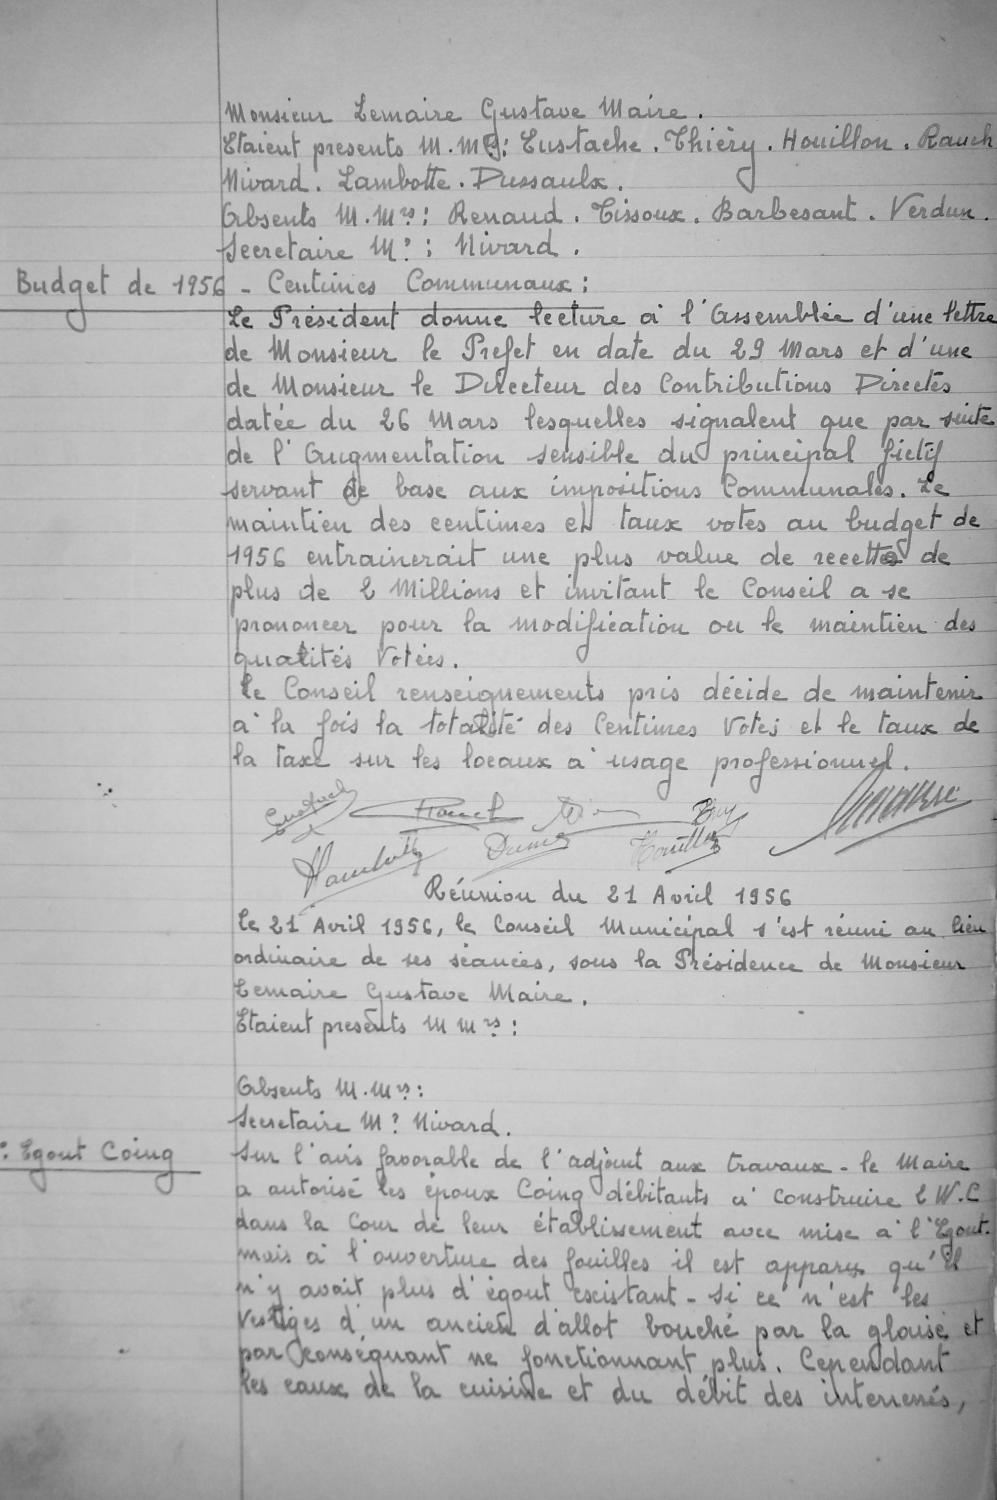 Monsieur Lemaire Gustave Maire.
Etaient presents M.Mrs: Eustache. Thiéry. Houillon. Rauch
Nivard. Lambotte. Dussaulx.
Absents M.Mrs: Renaud. Tissoux. Barbesant. Verdun.
Secretaire Mr: Nivard.
Budget de 1956 - Centimes Communaux:
Le Président donne lecture à l'Assemblée d'une lettre
de Monsieur le Prefet en date du 29 Mars et d'une
de Monsieur le Directeur des Contributions Directes
datée du 26 Mars lesquelles signalent que par suite
de l'Augmentation sensible du principal fictif
servant de base aux impositions Communales. Le
maintien des centimes et taux votes au budget de
1956 entrainerait une plus value de recettes de
plus de 2 Millions et invitant le Conseil a se
prononcer pour la modification ou le maintien des
quatités Votées.
Le Conseil renseignements pris décide de maintenir
à la fois la totalité des Centimes Votés et le taux de
la taxe sur les locaux à usage professionnel.
Rauch
Lambotte Houillon
Réunion du 21 Avril 1956
Le 21 Avril 1956, le Conseil Municipal s'est réuni au lieu
ordinaire de ses séances, sous la Présidence de Monsieur
Lemaire Gustave Maire.
Etaient presents M Mrs:
Absents M.Mrs:
Secretaire Mr Nivard.
: Egout Coing
Sur l'avis favorable de l'adjoint aux travaux - le Maire
a autorisé les époux Coing débitants à construire 2 W.C
dans la Cour de leur établissement avec mise à l'Egout.
mais à l'ouverture des fouilles il est apparu qu'il
n'y avait plus d'égout existant - si ce n'est les
Vestiges d'un ancien d'allot bouché par la glaise et
par conséquant ne fonctionnant plus. Cependant
les eaux de la cuisine et du débit des interressés,